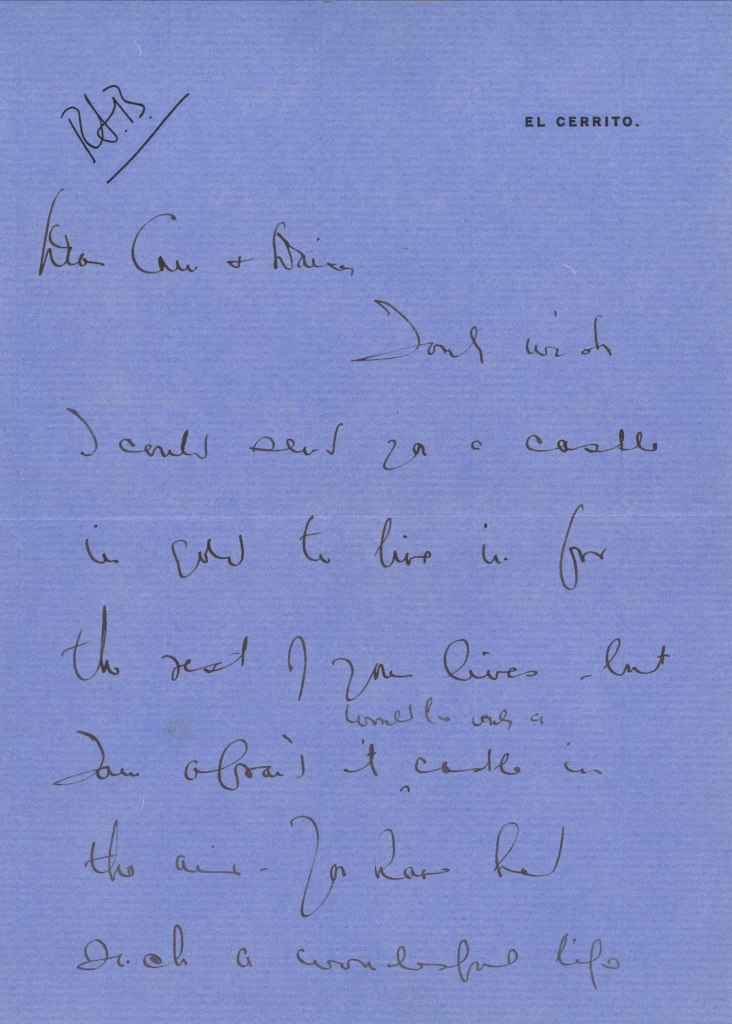 EL CERRITO.
Dear & Daisy
I only wish
I could send you a castle
in gold to live in for
the rest of your lives - but
would be only a
I am afraid it ^ castle in
the air - You have had
such a wonderful life